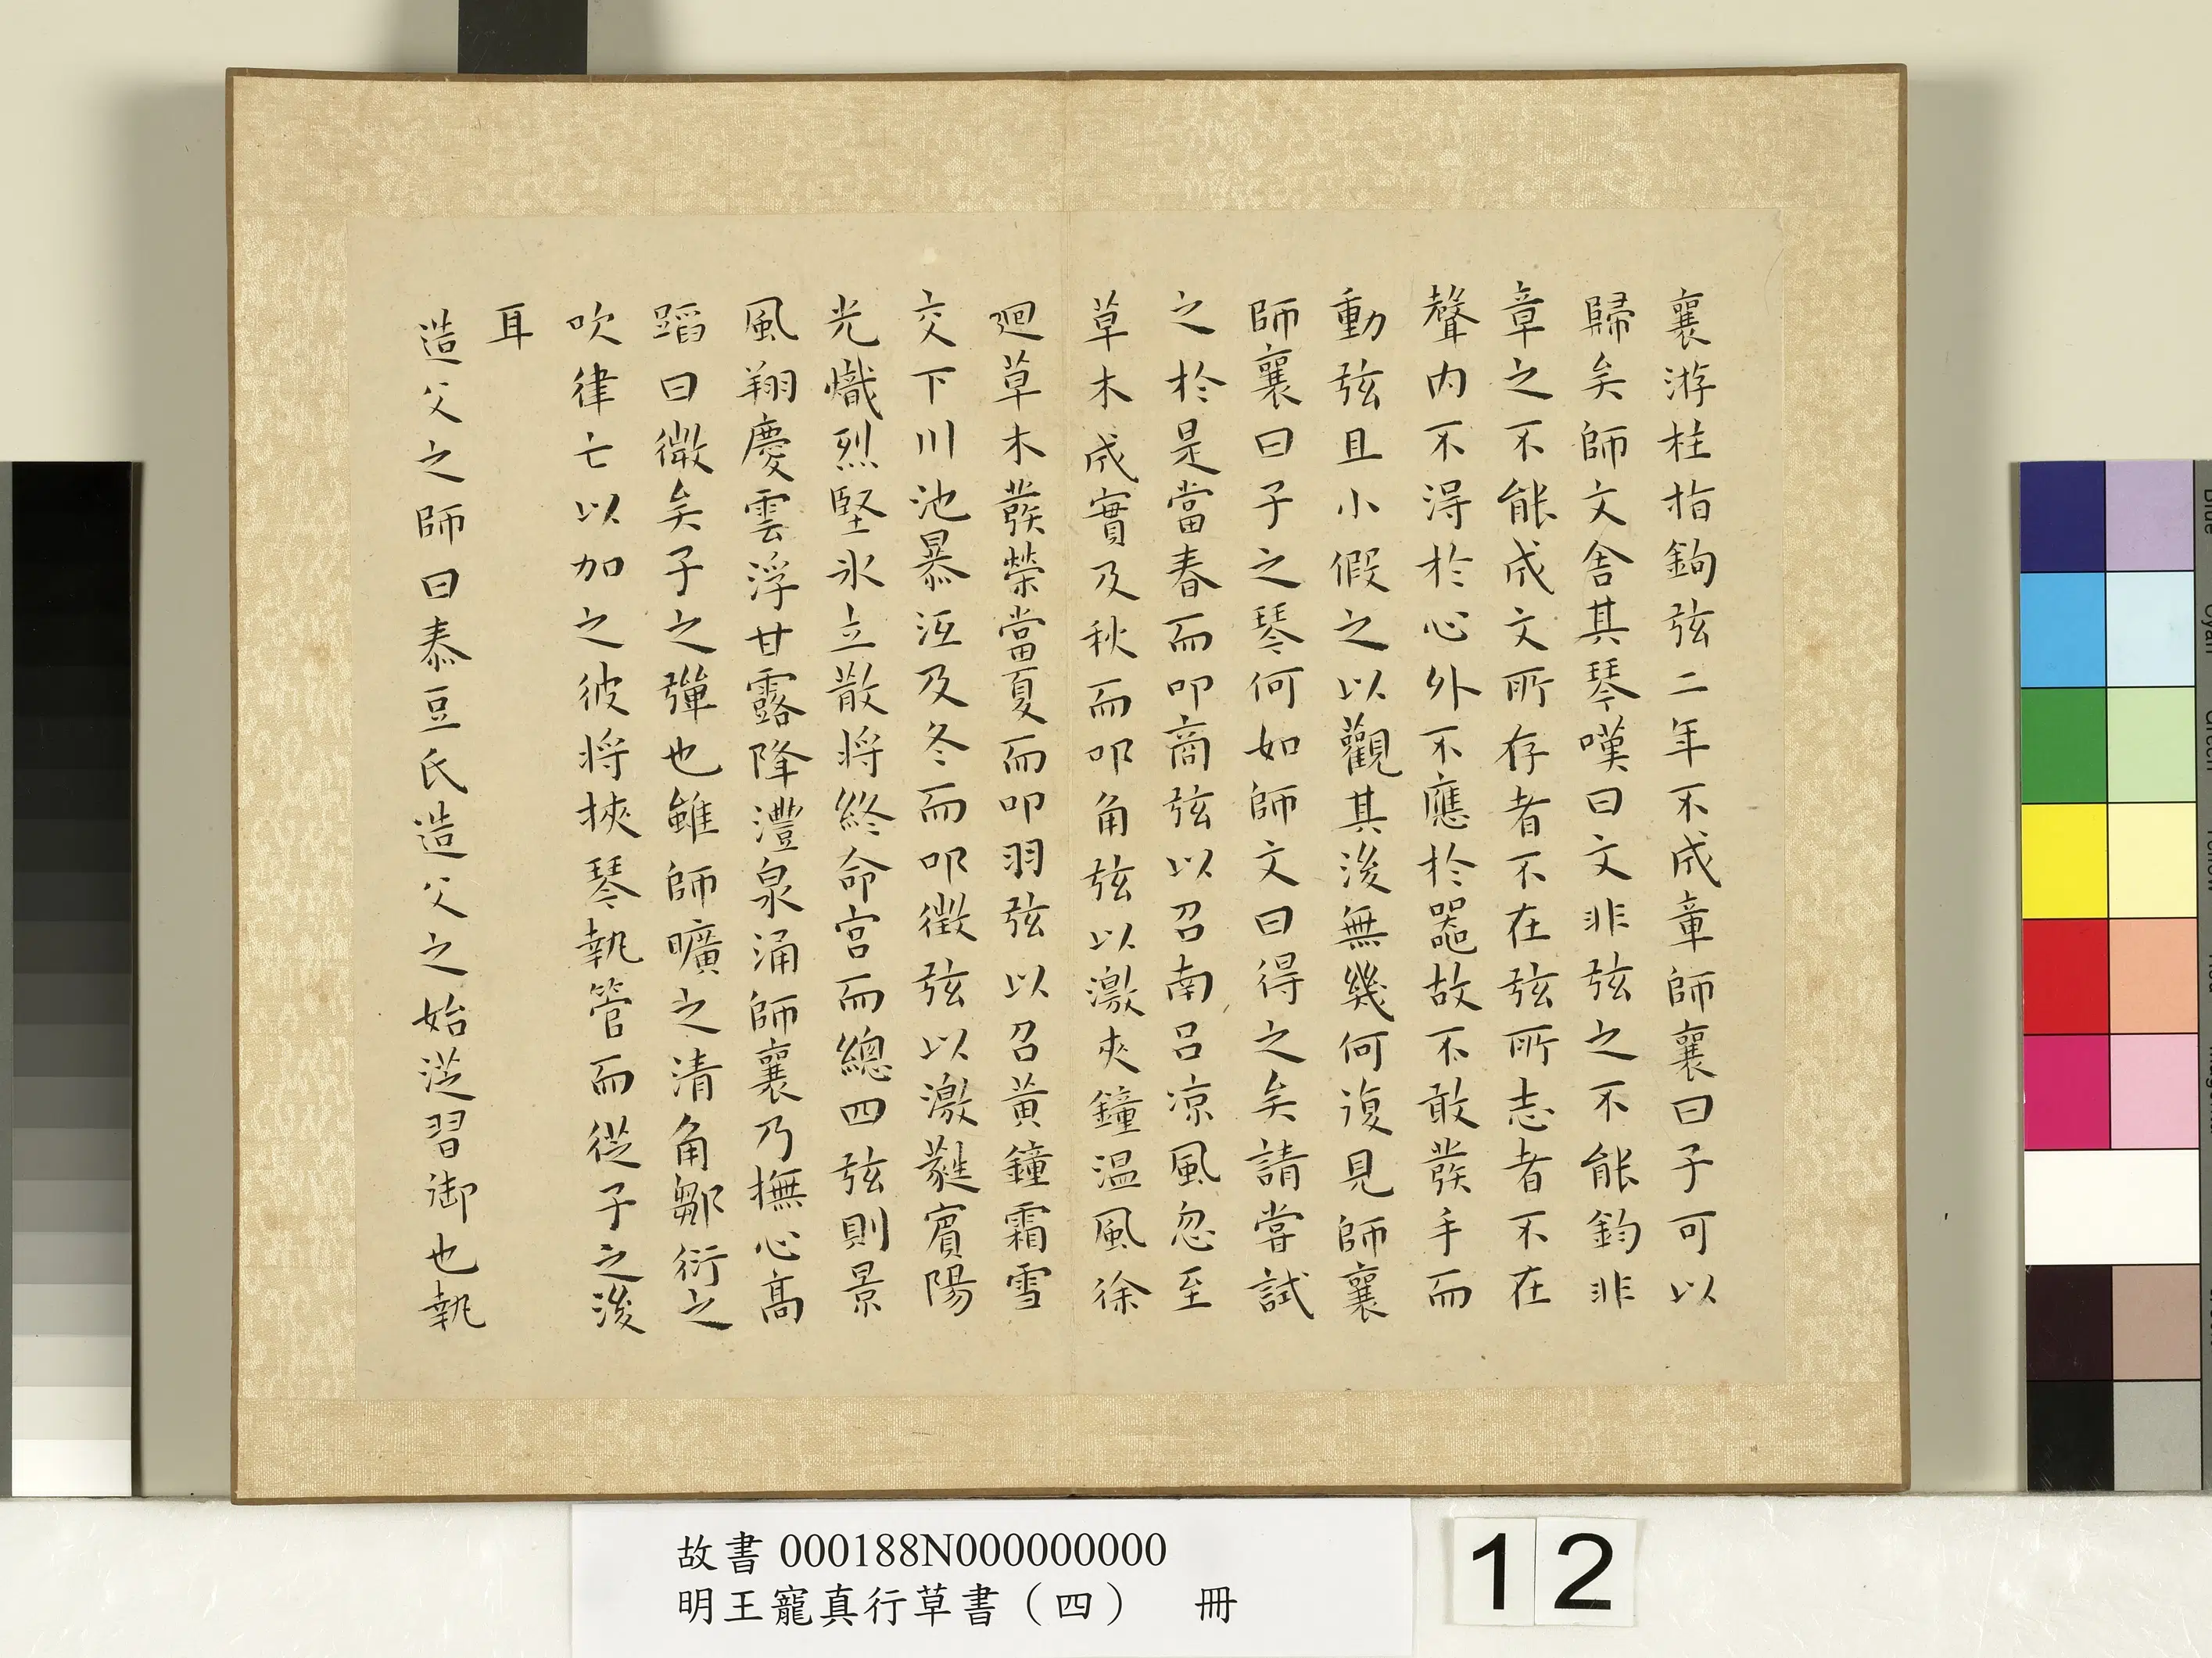 襄游柱指鉤弦二年不成章師襄曰子可以
歸矣師文舍其琴嘆曰文非弦之不能鈞非
章之不能成文所存者不在弦所志者不在
聲內不得於心外不應於器故不敢發手而
動弦且小假之以觀其後無幾何復見師襄
師襄曰子之琴何如師文曰得之矣請嘗試
之於是當春而叩商弦以召南呂凉風忽至
草木成實及秋而叩角弦以激夾鐘温風徐
迴草木發榮當夏而叩羽弦以召黃鐘霜雪
交下川池暴沍及冬而叩徵弦以激蕤賓陽
光熾烈堅氷立散將終命宮而總四弦則景
風翔慶雲浮甘露降澧泉涌師襄乃撫心高
蹈曰微矣子之彈也雖師曠之清角鄒衍之
吹律亡以加之彼將挾琴執管而從子之後
耳
造父之師曰泰豆氏造父之始從習御也執
故書000188N000000000
明王寵真行草書（四） 冊
12
Blue
Cyan
Green
Yellow
Red
Magenta